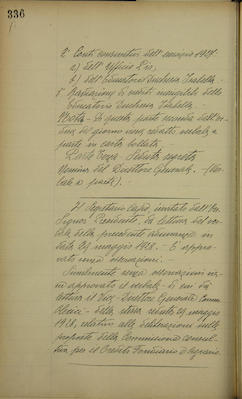 336
2° Conti consuntivi dell'esercizio 1927.
a) dell'Ufficio Pio,
b) dell'Educatorio Duchessa Isabella.
3° Radiazione di crediti inesigibili dello
Educatorio Duchessa Isabella.
Nota - Di questa parte seconda dell'or-
dine del giorno venne redatto verbale a
parte in carta bollata.
Parte Terza - Seduta segreta
Nomina del Direttore Generale. - (Ver-
bale a parte).
Il Segretario capo, invitato dall'
Signor Presidente, dà lettura del ver-
bale della precedente adunanza in
data 29 maggio 1928. - È appro-
vato senza osservazioni. -
Similmente senza osservazioni
approvato il verbale - di cui dà
lettura il Vice Direttore Generale
- della stessa seduta 29 maggio
1928, relativo alle deliberazioni sulle
proposte della Commissione consul-
tiva per il Credito Fondiario e Agrario.